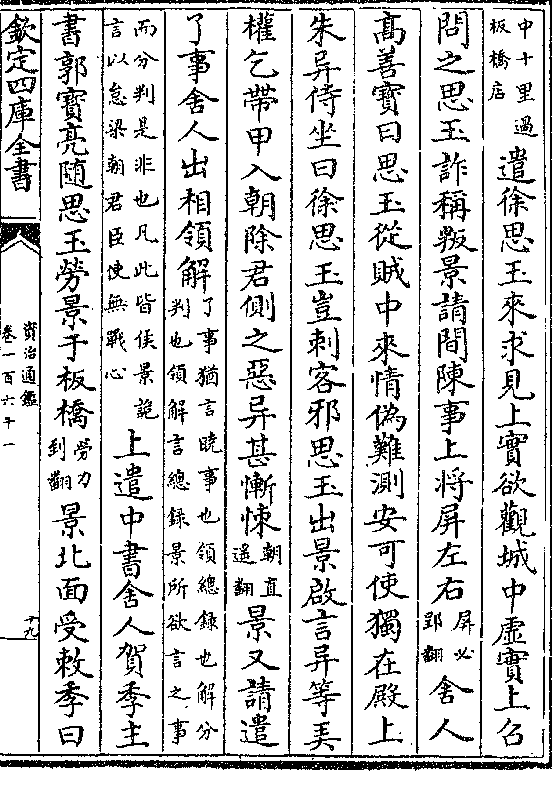 中十里過
板橋店
遣徐思玉來求見上實欲觀城中虛實上召
問之思玉詐稱叛景請間陳事上將屏左右
屏必
郢翻
舍人
高善寳曰思玉從賊中來情偽難測安可使獨在殿上
朱异侍坐曰徐思玉豈刺客邪思玉出景啟言异等弄
權乞帶甲入朝除君側之惡异甚慚悚
朝直
遥翻
景又請遣
了事舍人出相領解
了事猶言曉事也領總錄也解分
判也領解言總錄景所欲言之事
而分判是非也凡此皆侯景詭
言以怠梁朝君臣使無戰心
上遣中書舍人賀季主
書郭寳亮随思玉勞景于板橋
勞力
到翻
景北面受敕季曰
欽定四庫全書
資治通鑑
卷一百六十一
十九